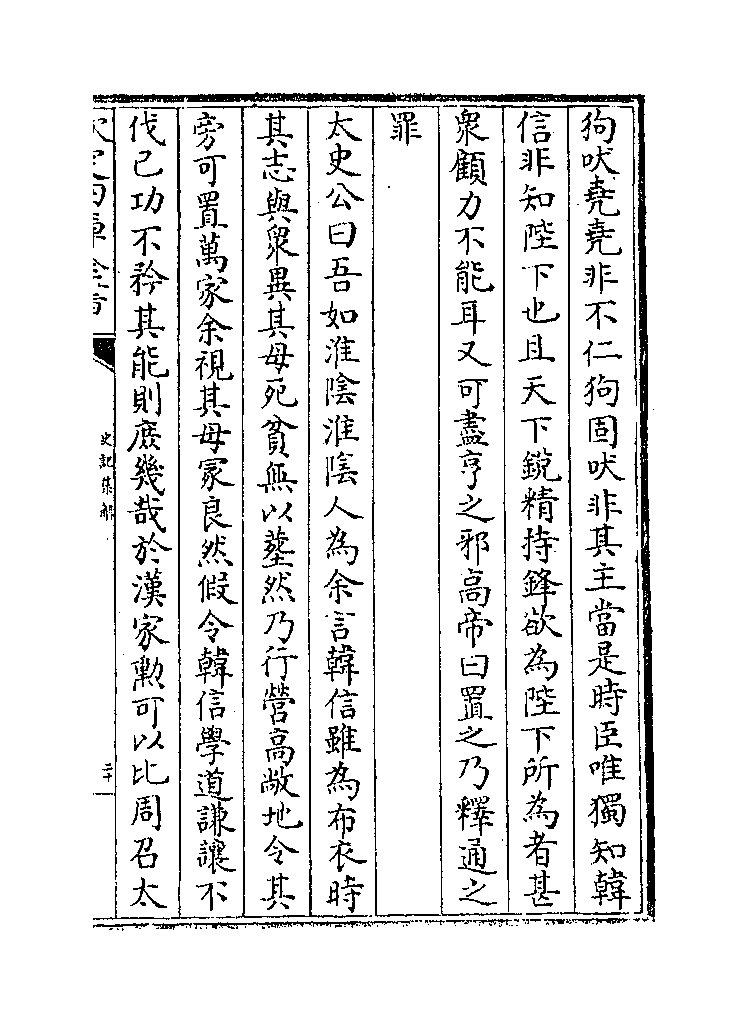 狗吠堯堯非不仁狗固吠非其主當是時臣唯獨知韓
信非知陛下也且天下鋭精持鋒欲為陛下所為者甚
衆顧力不能耳又可盡亨之邪高帝曰置之乃釋通之
罪
太史公曰吾如淮陰淮陰人為余言韓信雖為布衣時
其志與衆異其母死貧無以塟然乃行營高敞地令其
旁可置萬家余視其母冢良然假令韓信學道謙讓不
伐已功不矜其能則庶幾哉於漢家勲可以比周召太
欽定四庫全書
史記集解
二十